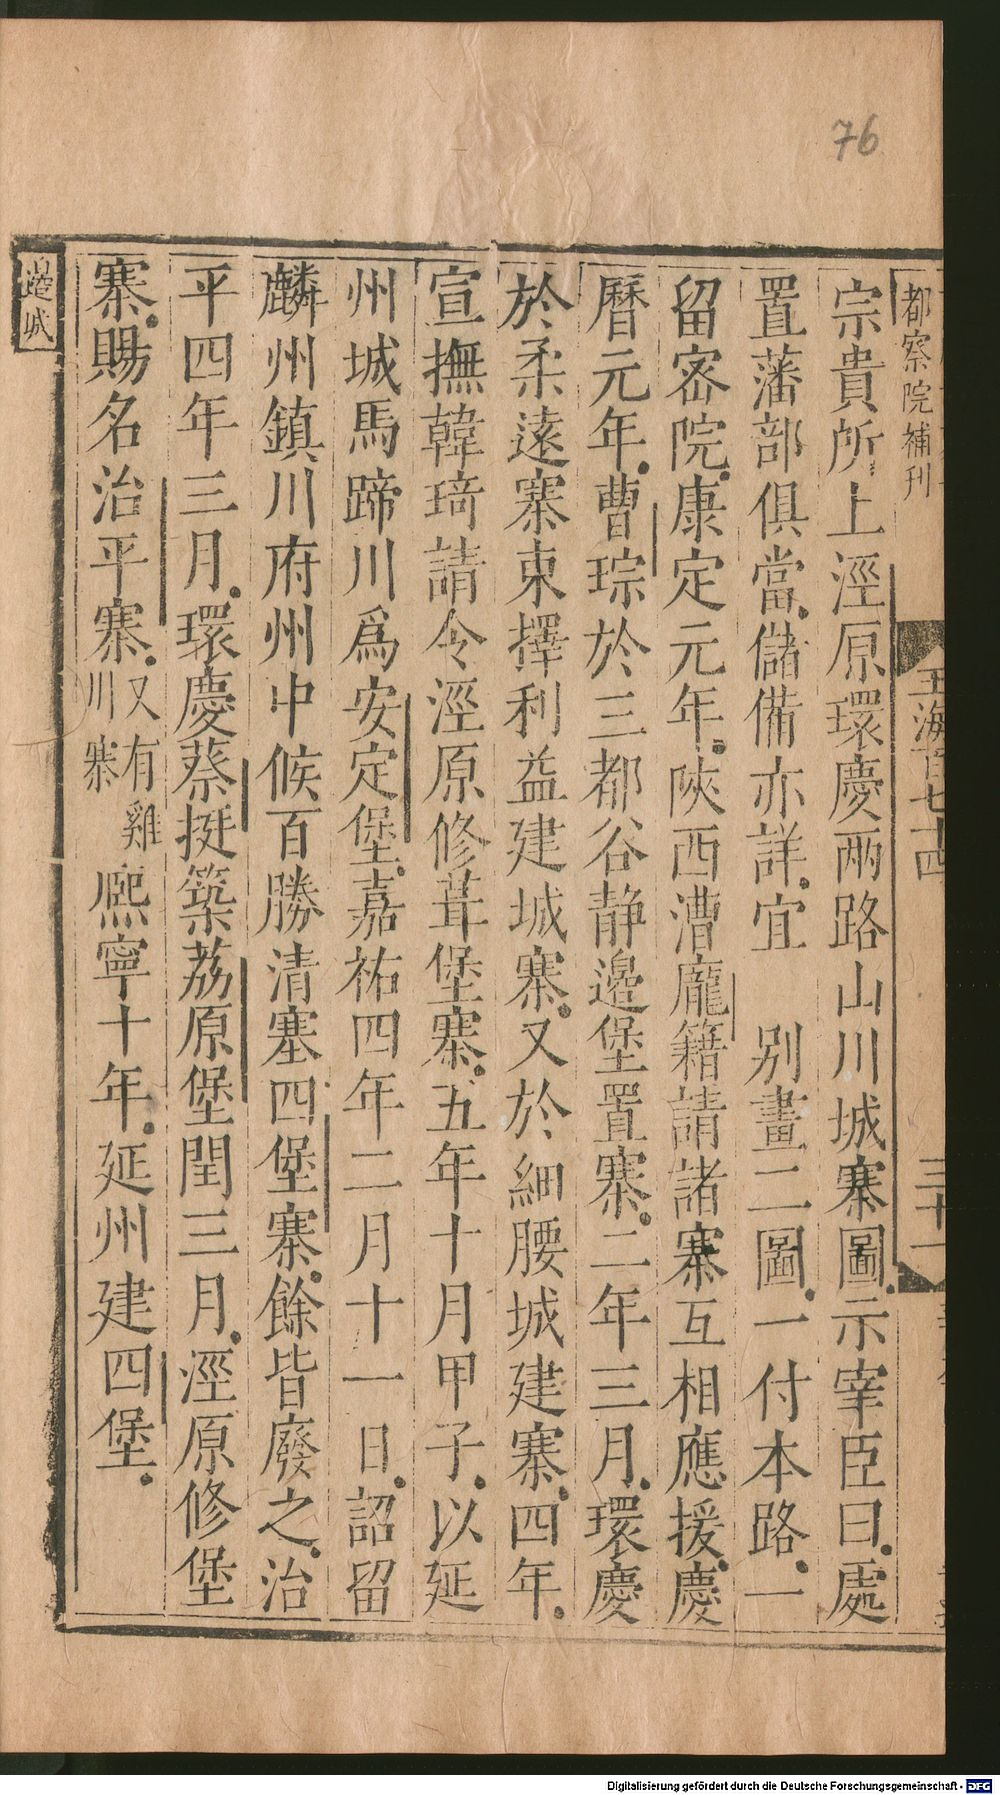 76
都察院補刊
玉海百七十四
三十一
宗貴所上涇原環慶兩路山川城寨圖示宰臣曰處
置藩部俱當儲備亦詳宜 別畫二圖一付本路一
留密院康定元年陝西漕龐籍請諸寨互相應援慶
曆元年曹琮於三都谷静邊堡置寨二年三月環慶
於柔遠寨東擇利益建城寨又於細腰城建寨四年
宣撫韓琦請令涇原修葺堡寨五年十月甲子以延
州城馬蹄川爲安定堡嘉祐四年二月十一日詔留
麟州鎮川府州中候百勝清塞四堡寨餘皆廢之治
平四年三月環慶蔡挺築荔原堡閏三月涇原修堡
寨賜名治平寨又有雞川寨熈寧十年延州建四堡
邊城
Digitalisierung gefördert durch die Deutsche Forschungsgemeinschaft - DFG